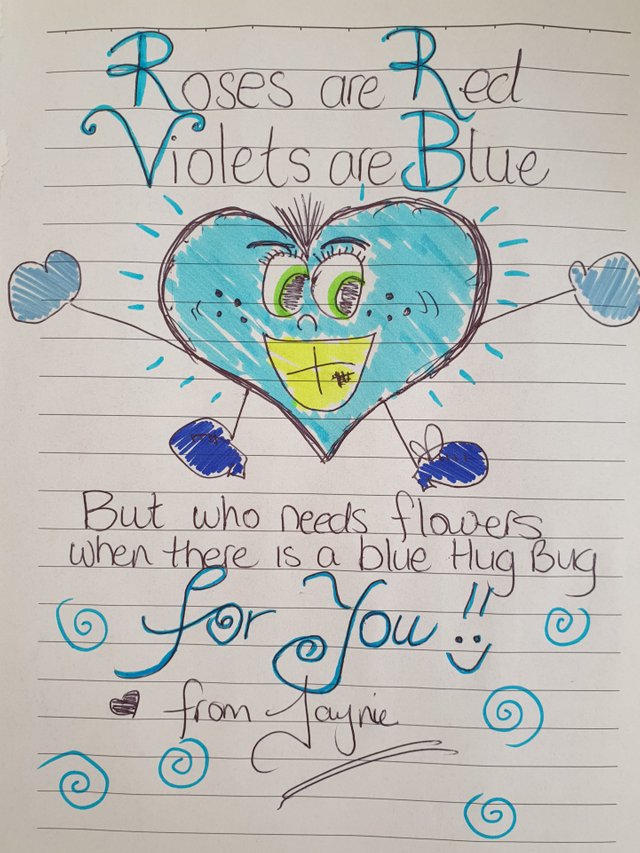 Roses are Red
Violets are Blue
But who needs flowers
when there is a blue Hug Bug
for You !!
from Jaynie